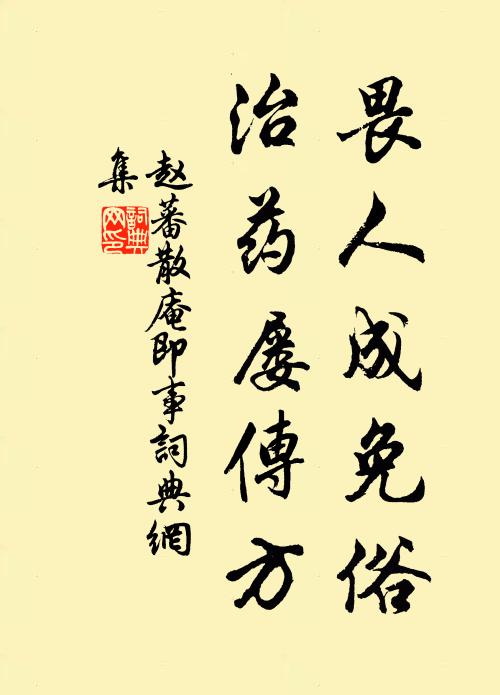 畏人成免俗
治药屡傳方
赵蕃散庵即事詞典網
集
詞典
网印